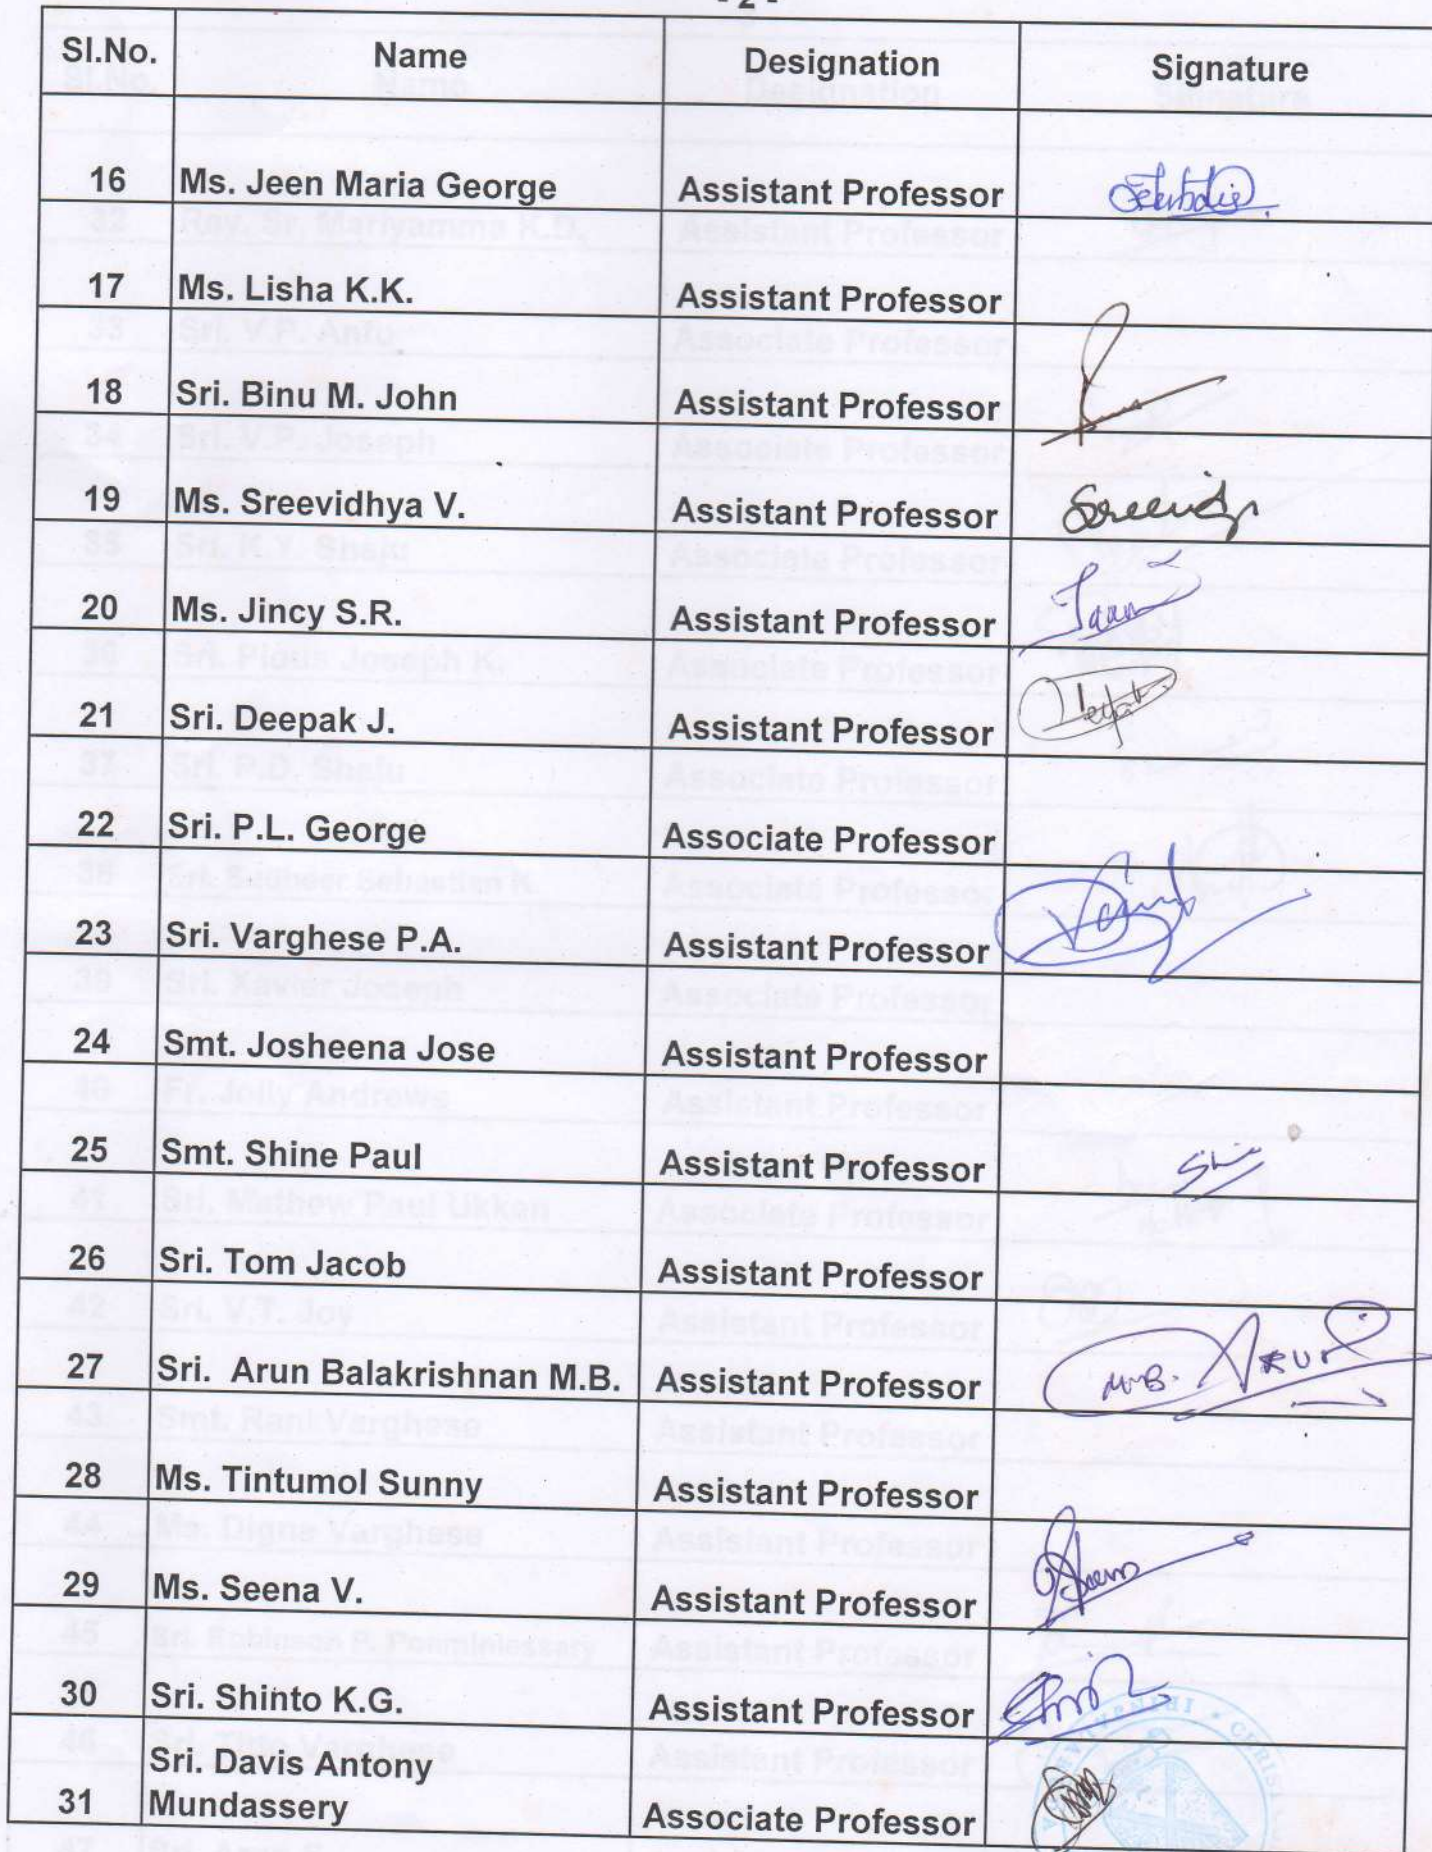 - 2 -
Sl.No. Name Designation Signature
16 Ms. Jeen Maria George Assistant Professor
17 Ms. Lisha K.K. Assistant Professor
18 Sri. Binu M. John Assistant Professor
19 Ms. Sreevidhya V. Assistant Professor
20 Ms. Jincy S.R. Assistant Professor
21 Sri. Deepak J. Assistant Professor
22 Sri. P.L. George Associate Professor
23 Sri. Varghese P.A. Assistant Professor
24 Smt. Josheena Jose Assistant Professor
25 Smt. Shine Paul Assistant Professor
26 Sri. Tom Jacob Assistant Professor
27 Sri. Arun Balakrishnan M.B. Assistant Professor M.B. Arun
28 Ms. Tintumol Sunny Assistant Professor
29 Ms. Seena V. Assistant Professor
30 Sri. Shinto K.G. Assistant Professor
Sri. Davis Antony
31 Mundassery Associate Professor